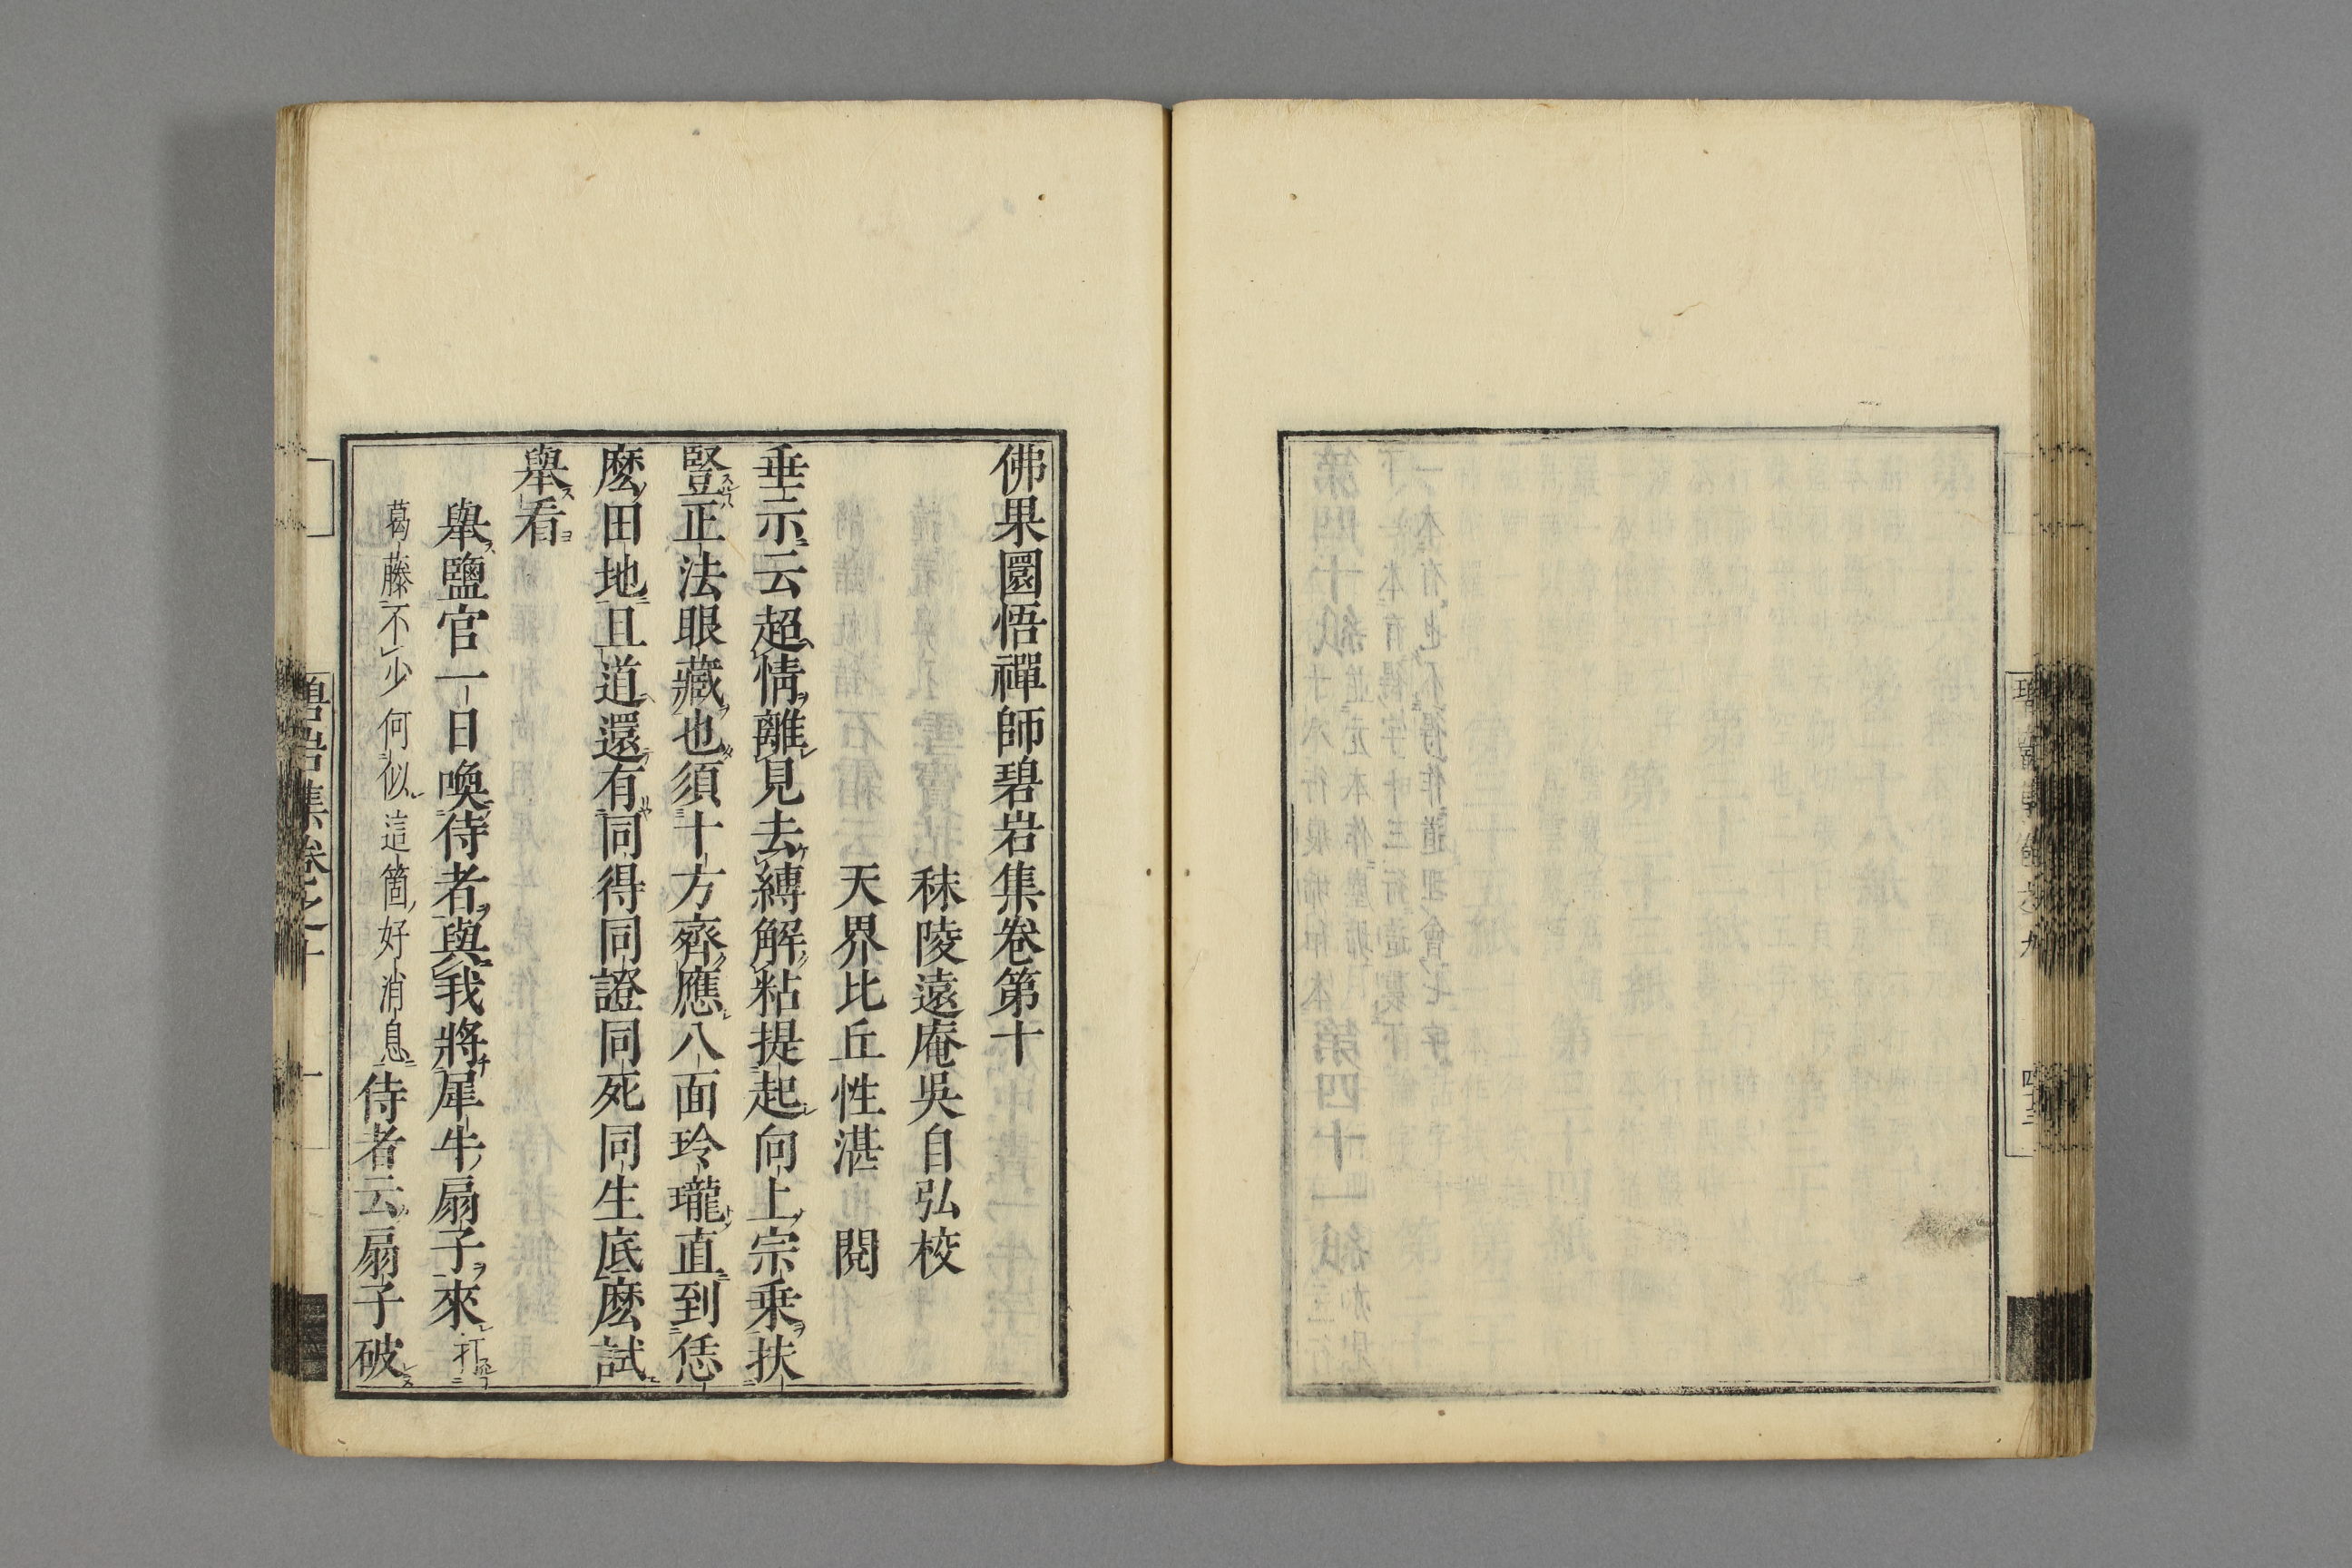 佛果圜悟禪師碧岩集卷第十
秣陵遠庵吳自弘校
天界比丘性湛　閱
垂示云超情離見去縛解粘提起向上宗乗扶
豎正法眼藏也須十方齊應八面玲瓏直到恁
麽田地且道還有同得同證同死同生底麽試
舉看
舉鹽官一日喚侍者與我將犀牛扇子來打
葛藤不少何似這箇好消息侍者云扇子破
碧岩集卷之十　一